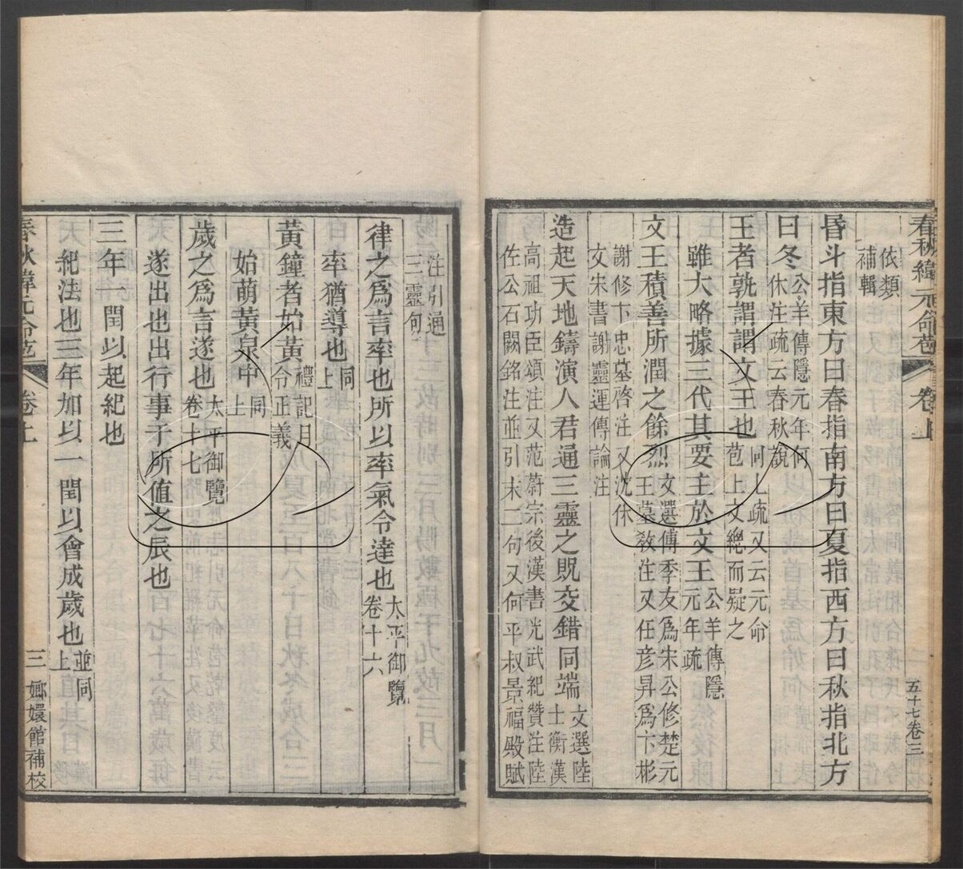 春秋緯元命苞 卷上 五十七卷三
依類
補輯
昏斗指東方曰春指南方曰夏指西方曰秋指北方
曰冬 公羊傳隱元年何
休注疏云春秋說
王者孰謂謂文王也 何 疏又云元命
苞上文總而疑之
雖大略據三代其要主於文王 公羊傳隱
元年疏
文王積善所潤之餘烈 文選傅季友為宋公修楚元
王墓敎注又任彥昇為卞彬
謝修卞忠墓啓注又沈休
文宋書謝靈運傳論注
造起天地鑄演人君通三靈之貺交錯同端 文選陸
士衡漢
高祖功臣頌注又范蔚宗後漢書光武紀贊注陸
佐公石闕銘注並引末二句又何平叔景福殿賦
注引通
三靈句
律之為言率也所以率氣令達也 太平御覽
卷十六
率猶導也 同
上
黃鐘者始黃 禮記月
令正義
始萌黃泉中 同
上
歲之為言遂也 太平御覽
卷十七
遂出也出行事于所值之辰也
三年一閏以起紀也
紀法也三年加以一閏以會成歲也 並同
上
春秋緯元命苞 卷上 三 嫏嬛館補校